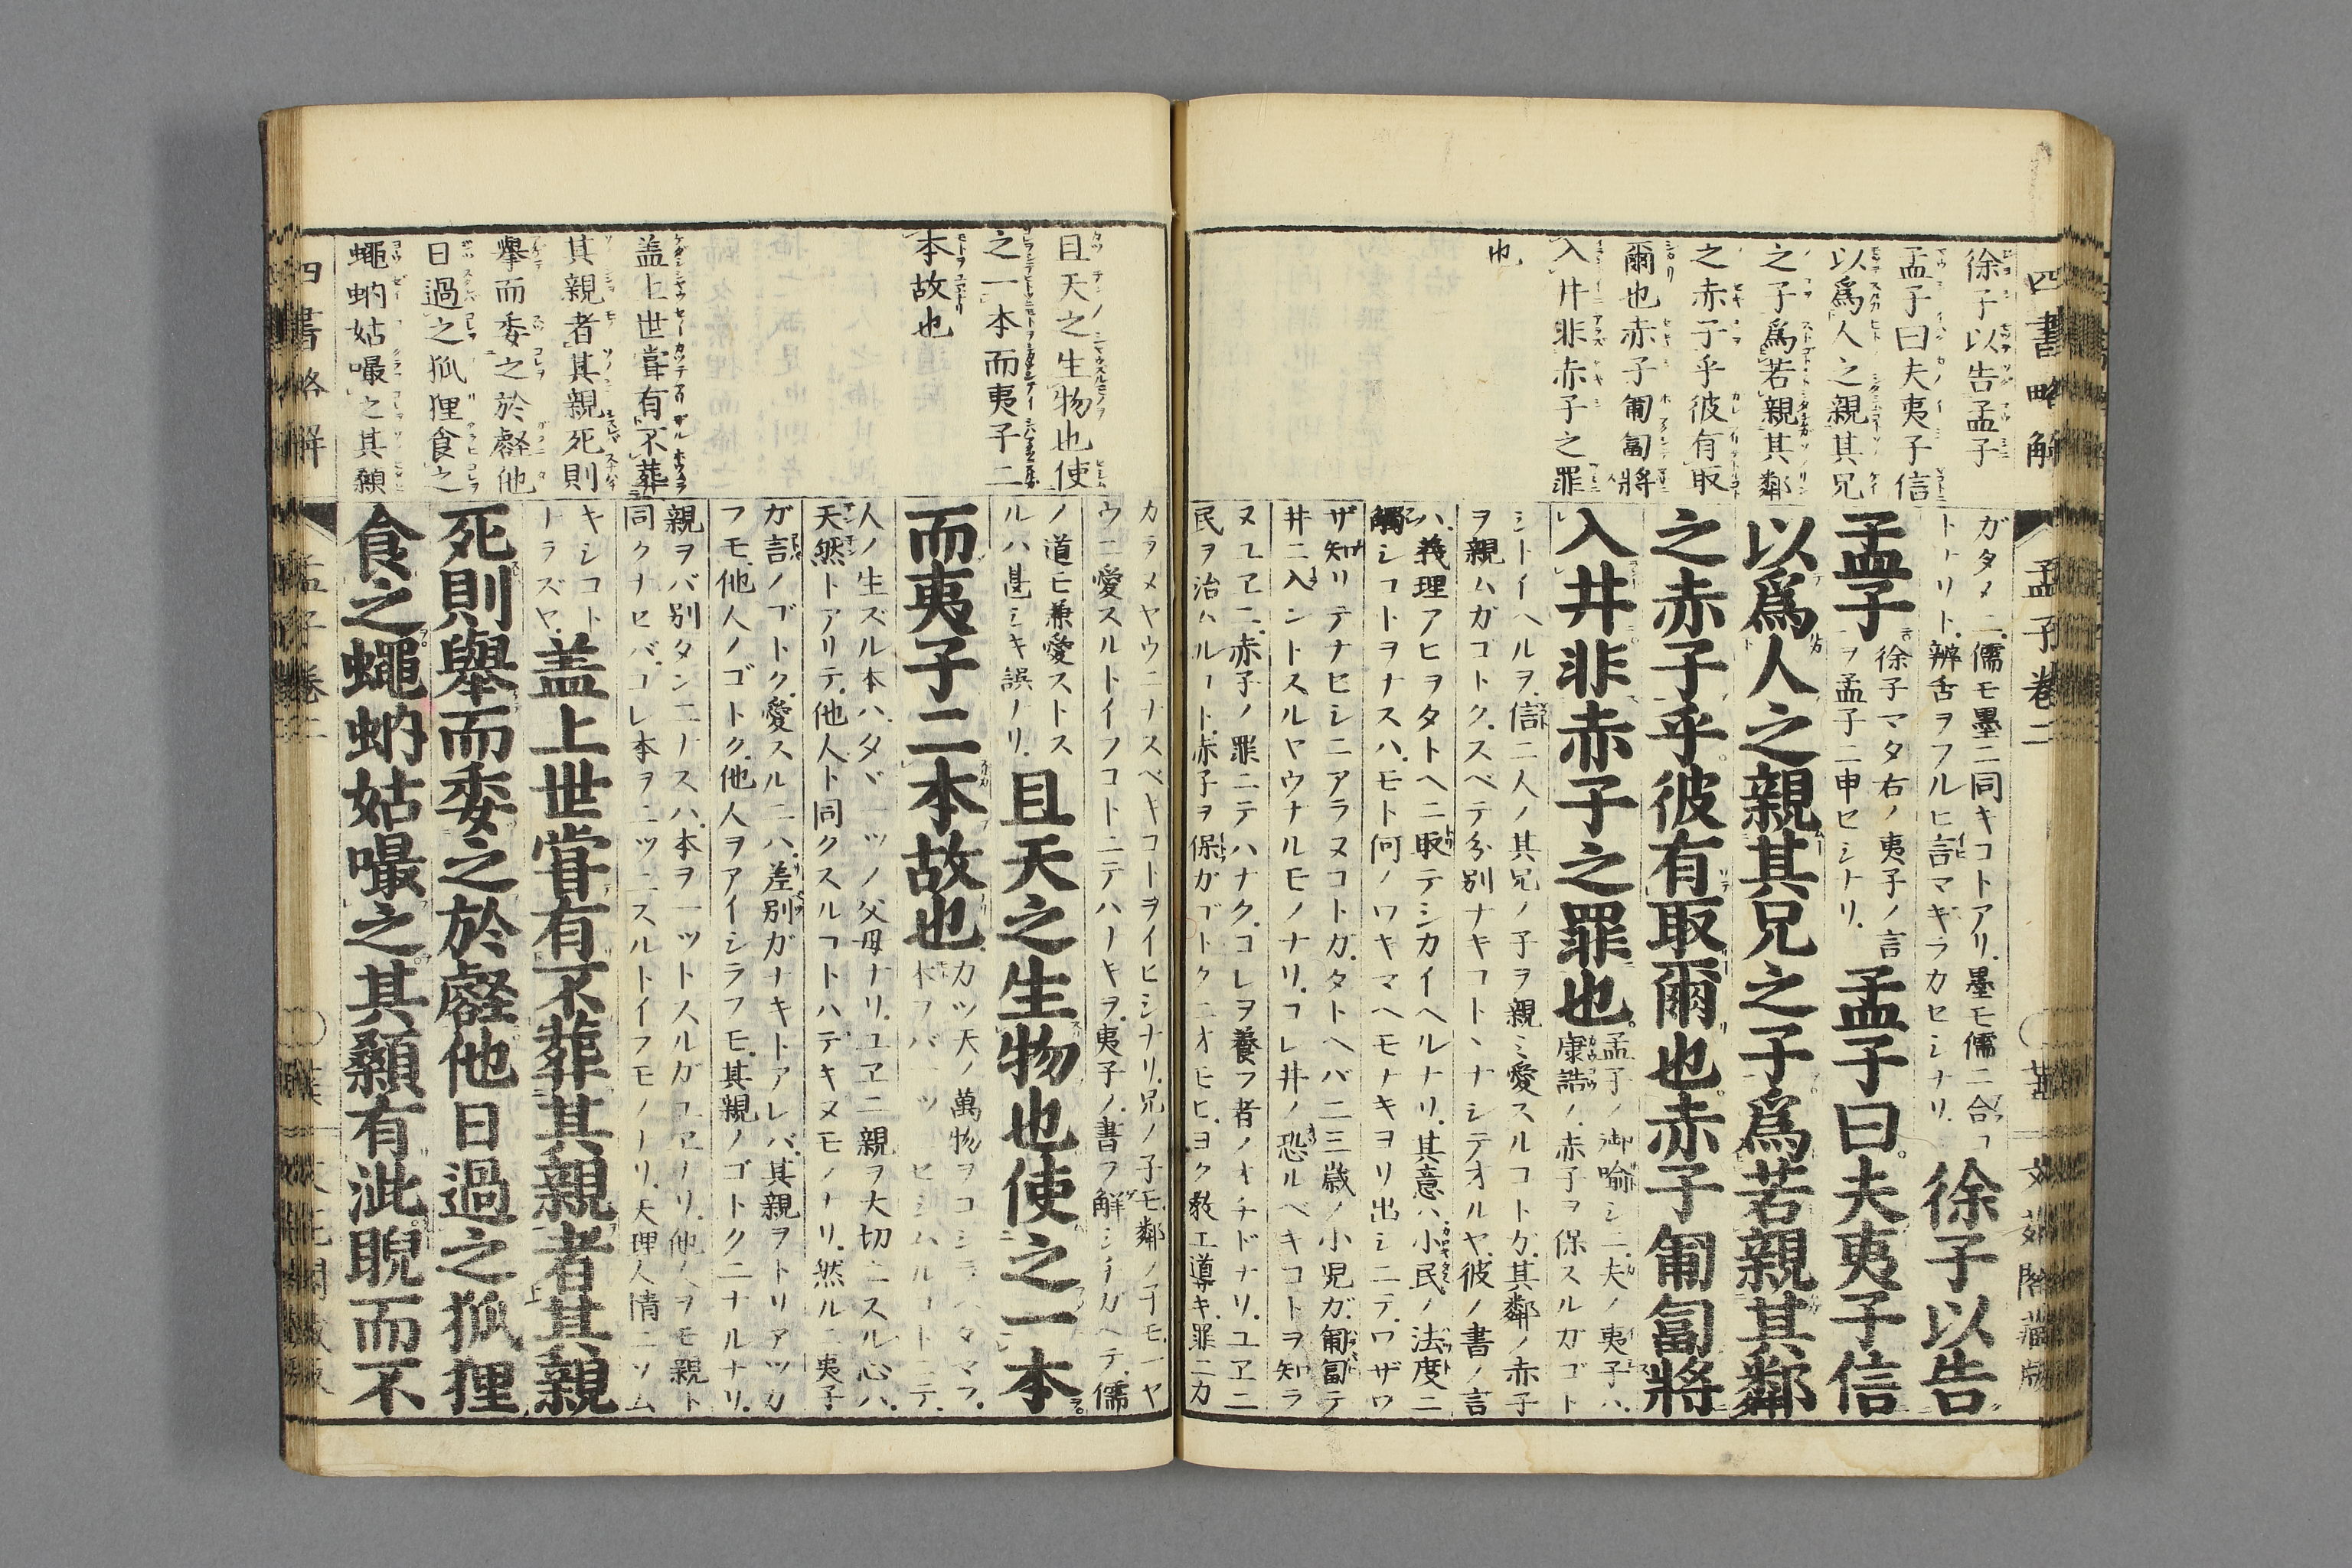 四書略解
孟子卷二
徐子以告孟子
孟子曰夫夷子信
以爲人之親其兄
之子爲若親其鄰
之赤子乎彼有取
爾也赤子匍匐將
入井非赤子之罪
也
ガタメニ儒モ墨ニ同キコトアリ墨モ儒ニ合フ
トトリト辨舌ヲフルヒ言マギラカセシナリ
徐子以告
孟子
徐子マタ右ノ夷子ノ言
ヲ孟子ニ申セシナリ
孟子曰夫夷子信
以爲人之親其兄之子爲若親其鄰
之赤子乎彼有取爾也赤子匍匐將
入井非赤子之罪也
孟子ノ御喻シニ夫ノ夷子ハ
康誥ノ赤子ヲ保スルガゴト
シトイヘルヲ信ニ人ノ其兄ノ子ヲ親ミ愛スルコトガ其鄰ノ赤子
ヲ親ムガゴトクスベテ分別ナキコトヽナシテオルヤ彼ノ書ノ言
ハ義理アヒヲタトヘニ取テシカイヘルナリ其意ハ小民ノ法度ニ
觸シコトヲナスハモト何ノワキマヘモナキヨリ出シニテワザワ
ザ知リテナセシニアラヌコトガタトヘバ二三歲ノ小児ガ匍匐テ
井ニ入ントスルヤウナルモノナリコレ井ノ恐ルベキコトヲ知ラ
ヌユヱニ赤子ノ罪ニテハナクコレヲ養フ者ノオチドナリユヱニ
民ヲ治ハルート赤子ヲ保ガゴトクニオモヒヨク敎エ導キ罪ニカ
且天之生物也使
之一本而夷子二
本故也
盖上世甞有不葬
其親者其親死則
擧而委之於壑他
日過之狐狸食之
蠅蚋姑嘬之其顙
カラメヤウニナスベキコトヲイヒシナリ兄ノ子モ鄰ノ子モ一ヤ
ウニ愛スルトイフコトニテハナキヲ夷子ノ書ヲ解シチガヘテ儒
ノ道モ兼愛ストス
ルハ甚シキ誤ナリ
且天之生物也使之一本
而夷子二本故也
カツ天ノ萬物ヲコシラヘタマフ
本ヲバ一ツセシムルートニテ
人ノ生ズル本ハタヾ一ツノ父母ナリユヱニ親ヲ大切ニスル心ハ
天然トアリテ他人ト同クスルコトハデキヌモノナリ然ルニ夷子
ガ言ノゴトク愛スルニハ差別ガナキトアレバ其親ヲトリアツカ
フモ他人ノゴトク他人ヲアイシラフモ其親ノゴトクニナルナリ
親ヲバ別タンニナスハ本ヲ一ツトスルガユヱナリ他人ヲモ親ト
同クナセバコレ本ヲニツニスルトイフモノナリ天理人情ニソム
キシコト
トラズヤ
盖上世甞有不葬其親者其親
死則擧而委之於壑他日過之狐狸
食之蠅蚋姑嘬之其顙有泚睨而不
四書略解
孟子卷二